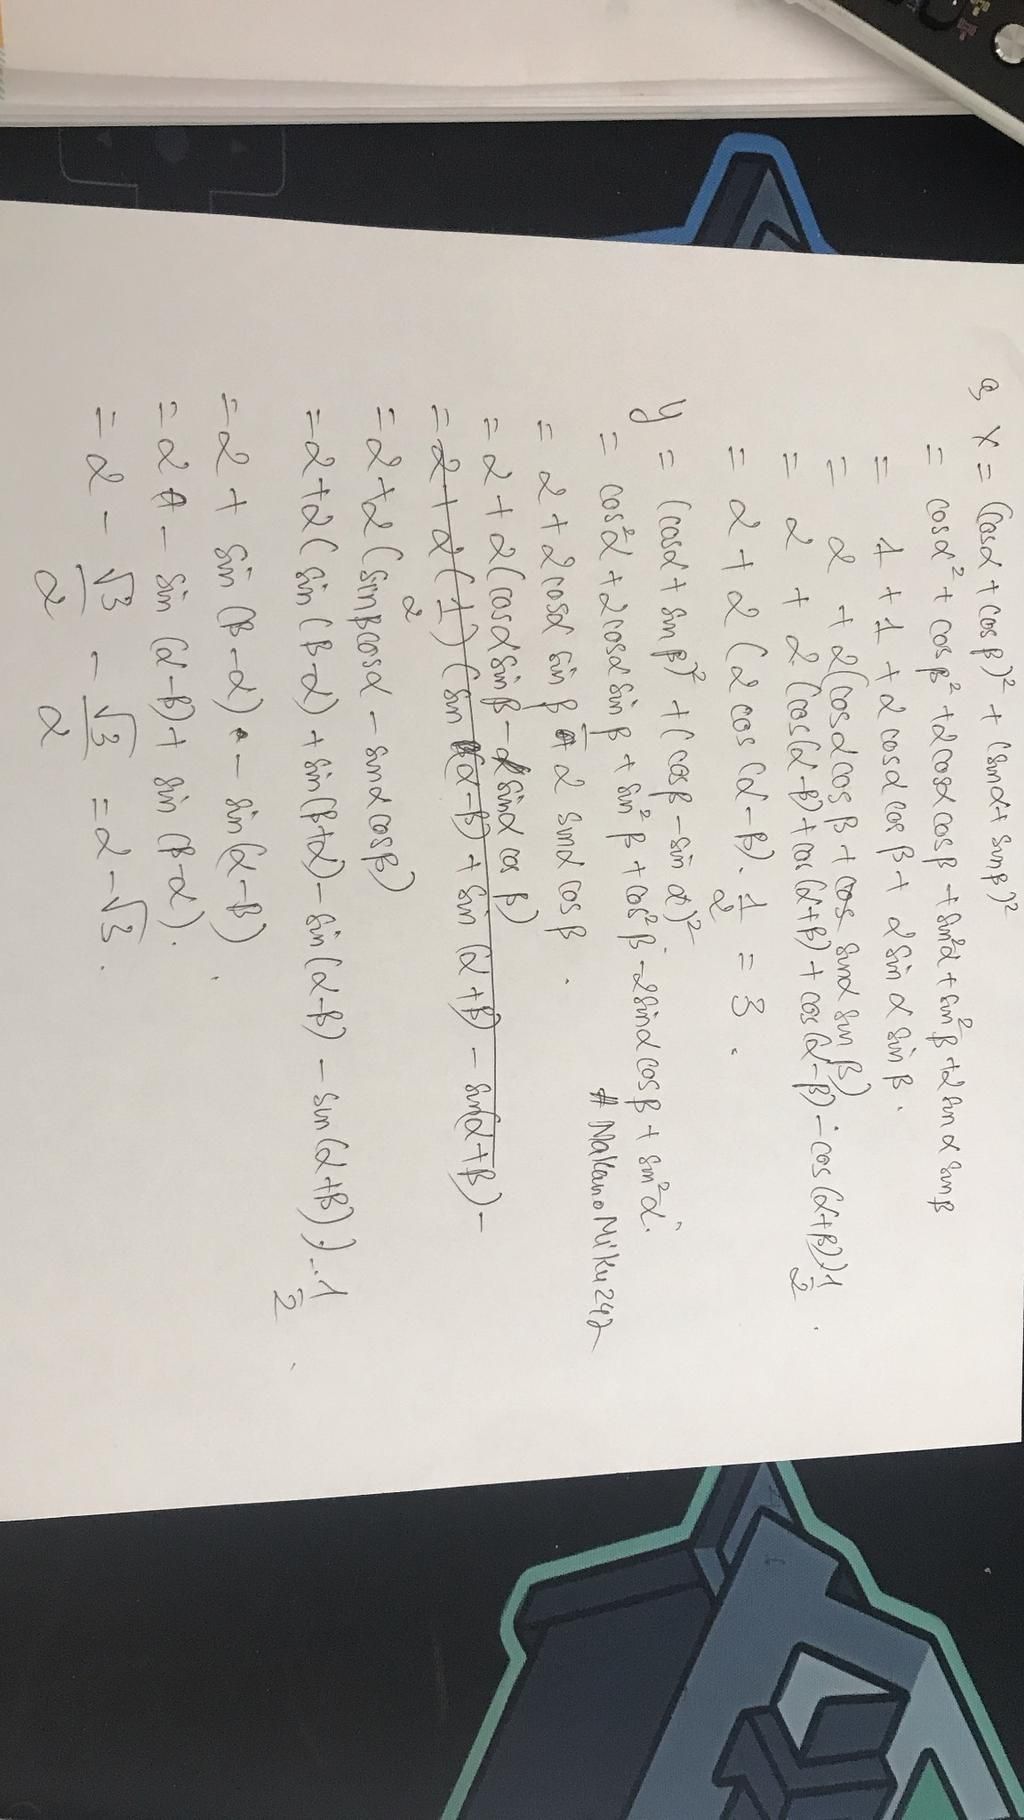 a, X = (cosα + cosβ)² + (sinα + sinβ)²
= cosα² + cosβ² + 2cosα cosβ + sin²α + sin²β + 2 sin α sin β
= 1 + 1 + 2 cosα cos β + 2 sin α sin β.
= 2 + 2(cos α cos β + cos sinα sin β)
= 2 + 2 (cos(α-β) + cos(α+β) + cos(α-β) - cos(α+β)) 1/2 .
= 2 + 2 (2 cos (α-β). 1/2 = 3 .
y = (cosα + sin β)² + (cos β - sin α)²
= cos²α + 2cosα sin β + sin² β + cos² β - 2sinα cos β + sin²α.
# NakanoMiku242
= 2 + 2cosα sin β - 2 sinα cos β .
= 2 + 2(cosα sin β - sinα cos β)
= 2 + 2 (1/2) (sin (α-β) + sin (α+β) - sin(α+β) -
= 2 + 2 (sin β cosα - sinα cos β)
= 2 + 2 ( sin (β-α) + sin(β+α) - sin(α-β) - sin(α+β) ) . 1/2 .
= 2 + sin (β-α) - sin(α-β) .
= 2 - sin (α-β) + sin (β-α) .
= 2 - √3/2 - √3/2 = 2 - √3 .